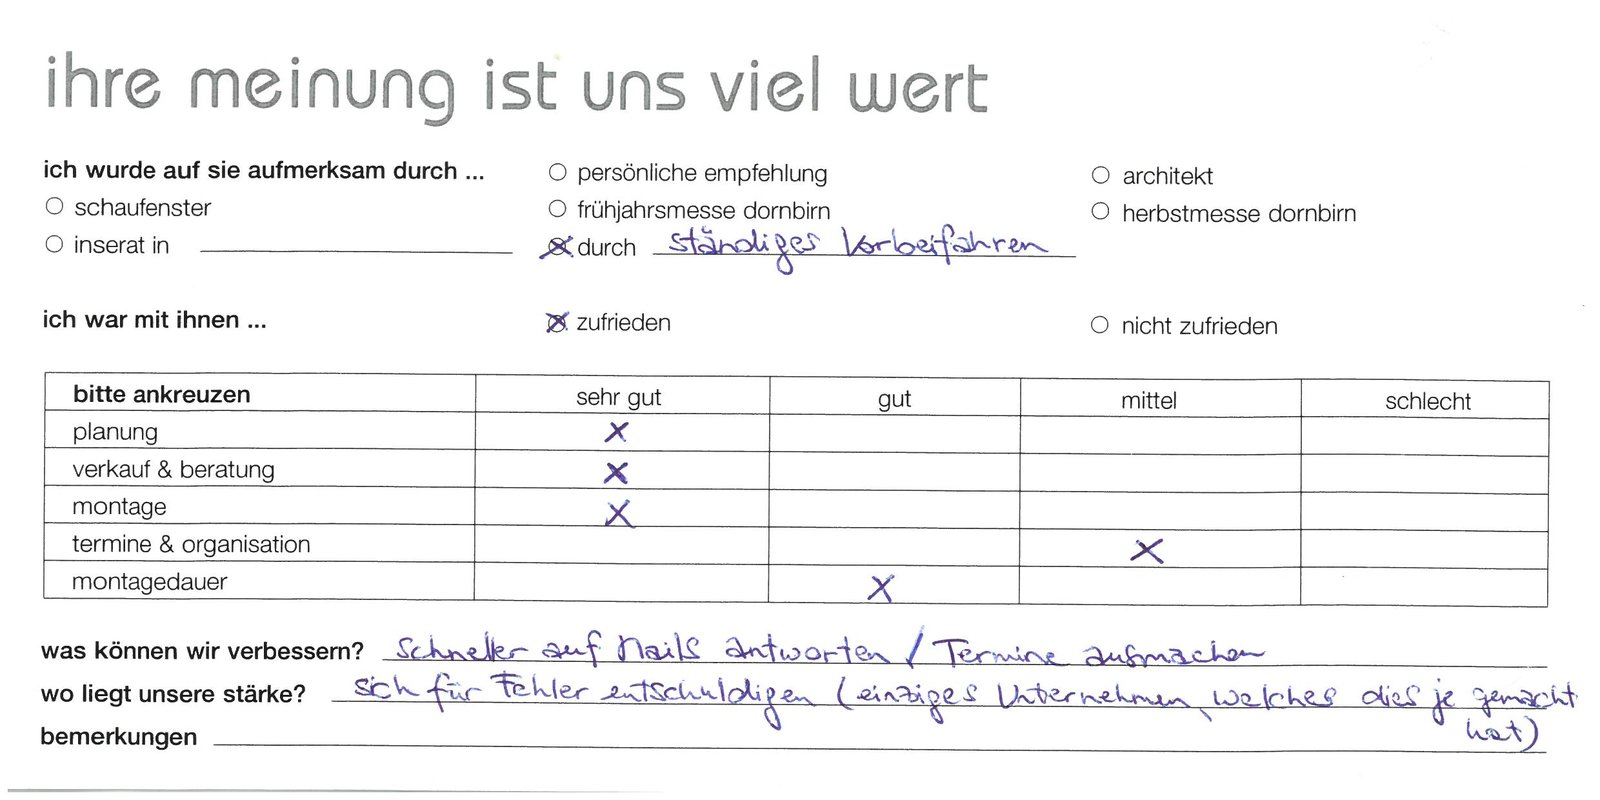 ihre meinung ist uns viel wert
ich wurde auf sie aufmerksam durch ... ○ persönliche empfehlung ○ architekt
○ schaufenster ○ frühjahrsmesse dornbirn ○ herbstmesse dornbirn
○ inserat in ☒ durch ständiges Vorbeifahren
ich war mit ihnen ... ☒ zufrieden ○ nicht zufrieden
bitte ankreuzen sehr gut gut mittel schlecht
planung X
verkauf & beratung X
montage X
termine & organisation X
montagedauer X
was können wir verbessern? Schneller auf Mails antworten / Termine ausmachen
wo liegt unsere stärke? sich für Fehler entschuldigen (einziges Unternehmen, welches dies je gemacht
hat)
bemerkungen